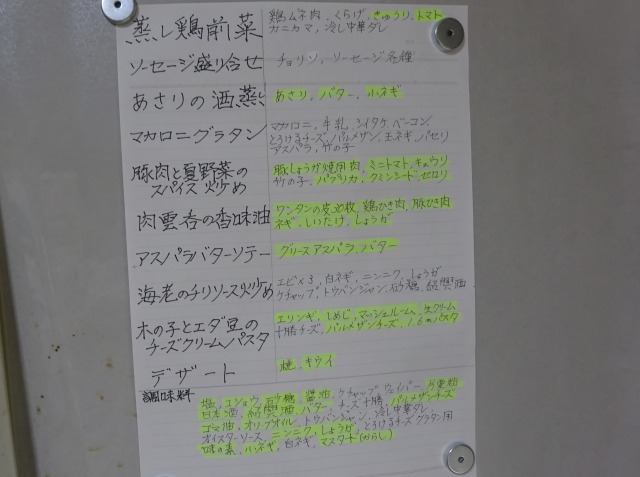 蒸し鶏前菜
鶏ムネ肉、くらげ、きゅうり、トマト
カニカマ、冷し中華ダレ
ソーセージ盛り合せ
チョリソ、ソーセージ各種
あさりの酒蒸し
あさり、バター、小ネギ
マカロニグラタン
マカロニ、牛乳、シイタケ、ベーコン、
とろけるチーズ、パルメザン、玉ネギ、パセリ
アスパラ、竹の子
豚肉と夏野菜の
スパイス炒め
豚しょうが焼用肉、ミニトマト、キュウリ
竹の子、パプリカ、クミンシード、セロリ
肉雲呑の香味油
ワンタンの皮30枚、鶏ひき肉、豚ひき肉
ネギ、しいたけ、しょうが
アスパラバターソテー
グリーンアスパラ、バター
海老のチリソース炒め
エビ×3、白ネギ、ニンニク、しょうが
ケチャップ、トウバンジャン、砂糖、紹興酒
木の子とエダ豆の
チーズクリームパスタ
エリンギ、しめじ、マッシュルーム、生クリーム
十勝チーズ、パルメザンチーズ、1.6mパスタ
デザート
桃、キウイ
調味料
塩、コショウ、砂糖、醤油、ケチャップ、ウェイパー、片栗粉
日本酒、紹興酒、バター、チーズ十勝、パルメザンチーズ
ゴマ油、オリーブオイル、トウバンジャン、冷し中華ダレ
オイスターソース、ニンニク、しょうが、とろけるチーズグラタン用
味の素、小ネギ、白ネギ、マスタード(からし)